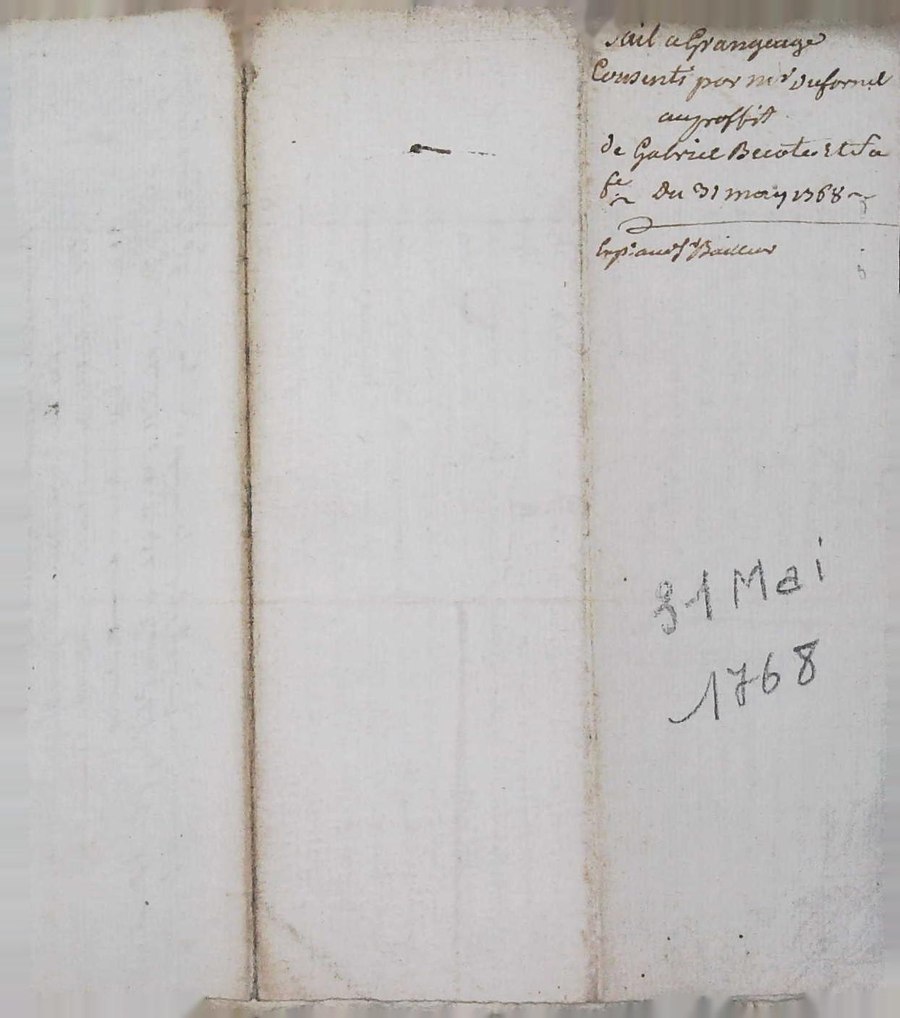 Bail a Grangeage
Consenti par mr Dufornel
au proffit
de Gabriel Et sa
fe Du 31 may 1768
Expn au d. sr Bailleur
31 Mai
1768